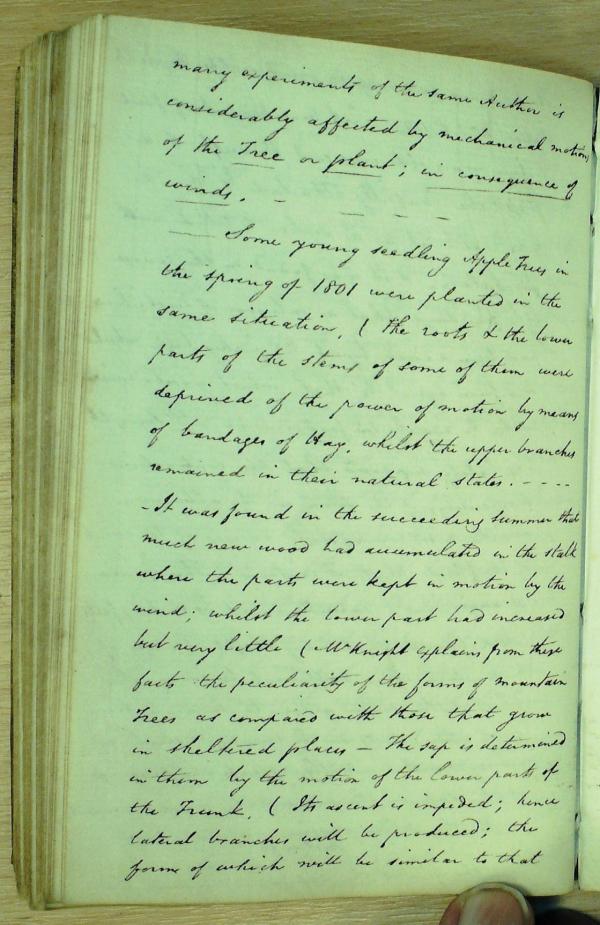 many experiments of the same Author is
considerably affected by mechanical motion
of the Tree or plant; in consequence of
winds. - — - -
— Some young seedling Apple Trees in
the spring of 1801 were planted in the
same situation, ( the roots & the lower
parts of the stems of some of them were
deprived of the power of motion by means
of bandages of Hay, whilst the upper branches
remained in their natural states. - - - -
- It was found in the succeeding summer that
much new wood had accumulated in the stalk
where the parts were kept in motion by the
wind; whilst the lower part had increased
but very little ( Mr Knight explains from these
facts the peculiarity of the forms of mountain
Trees as compared with those that grow
in sheltered places — The sap is determined
in them by the motion of the lower parts of
the Trunk. ( Its ascent is impeded; hence
lateral branches will be produced; the
forms of which will be similar to that